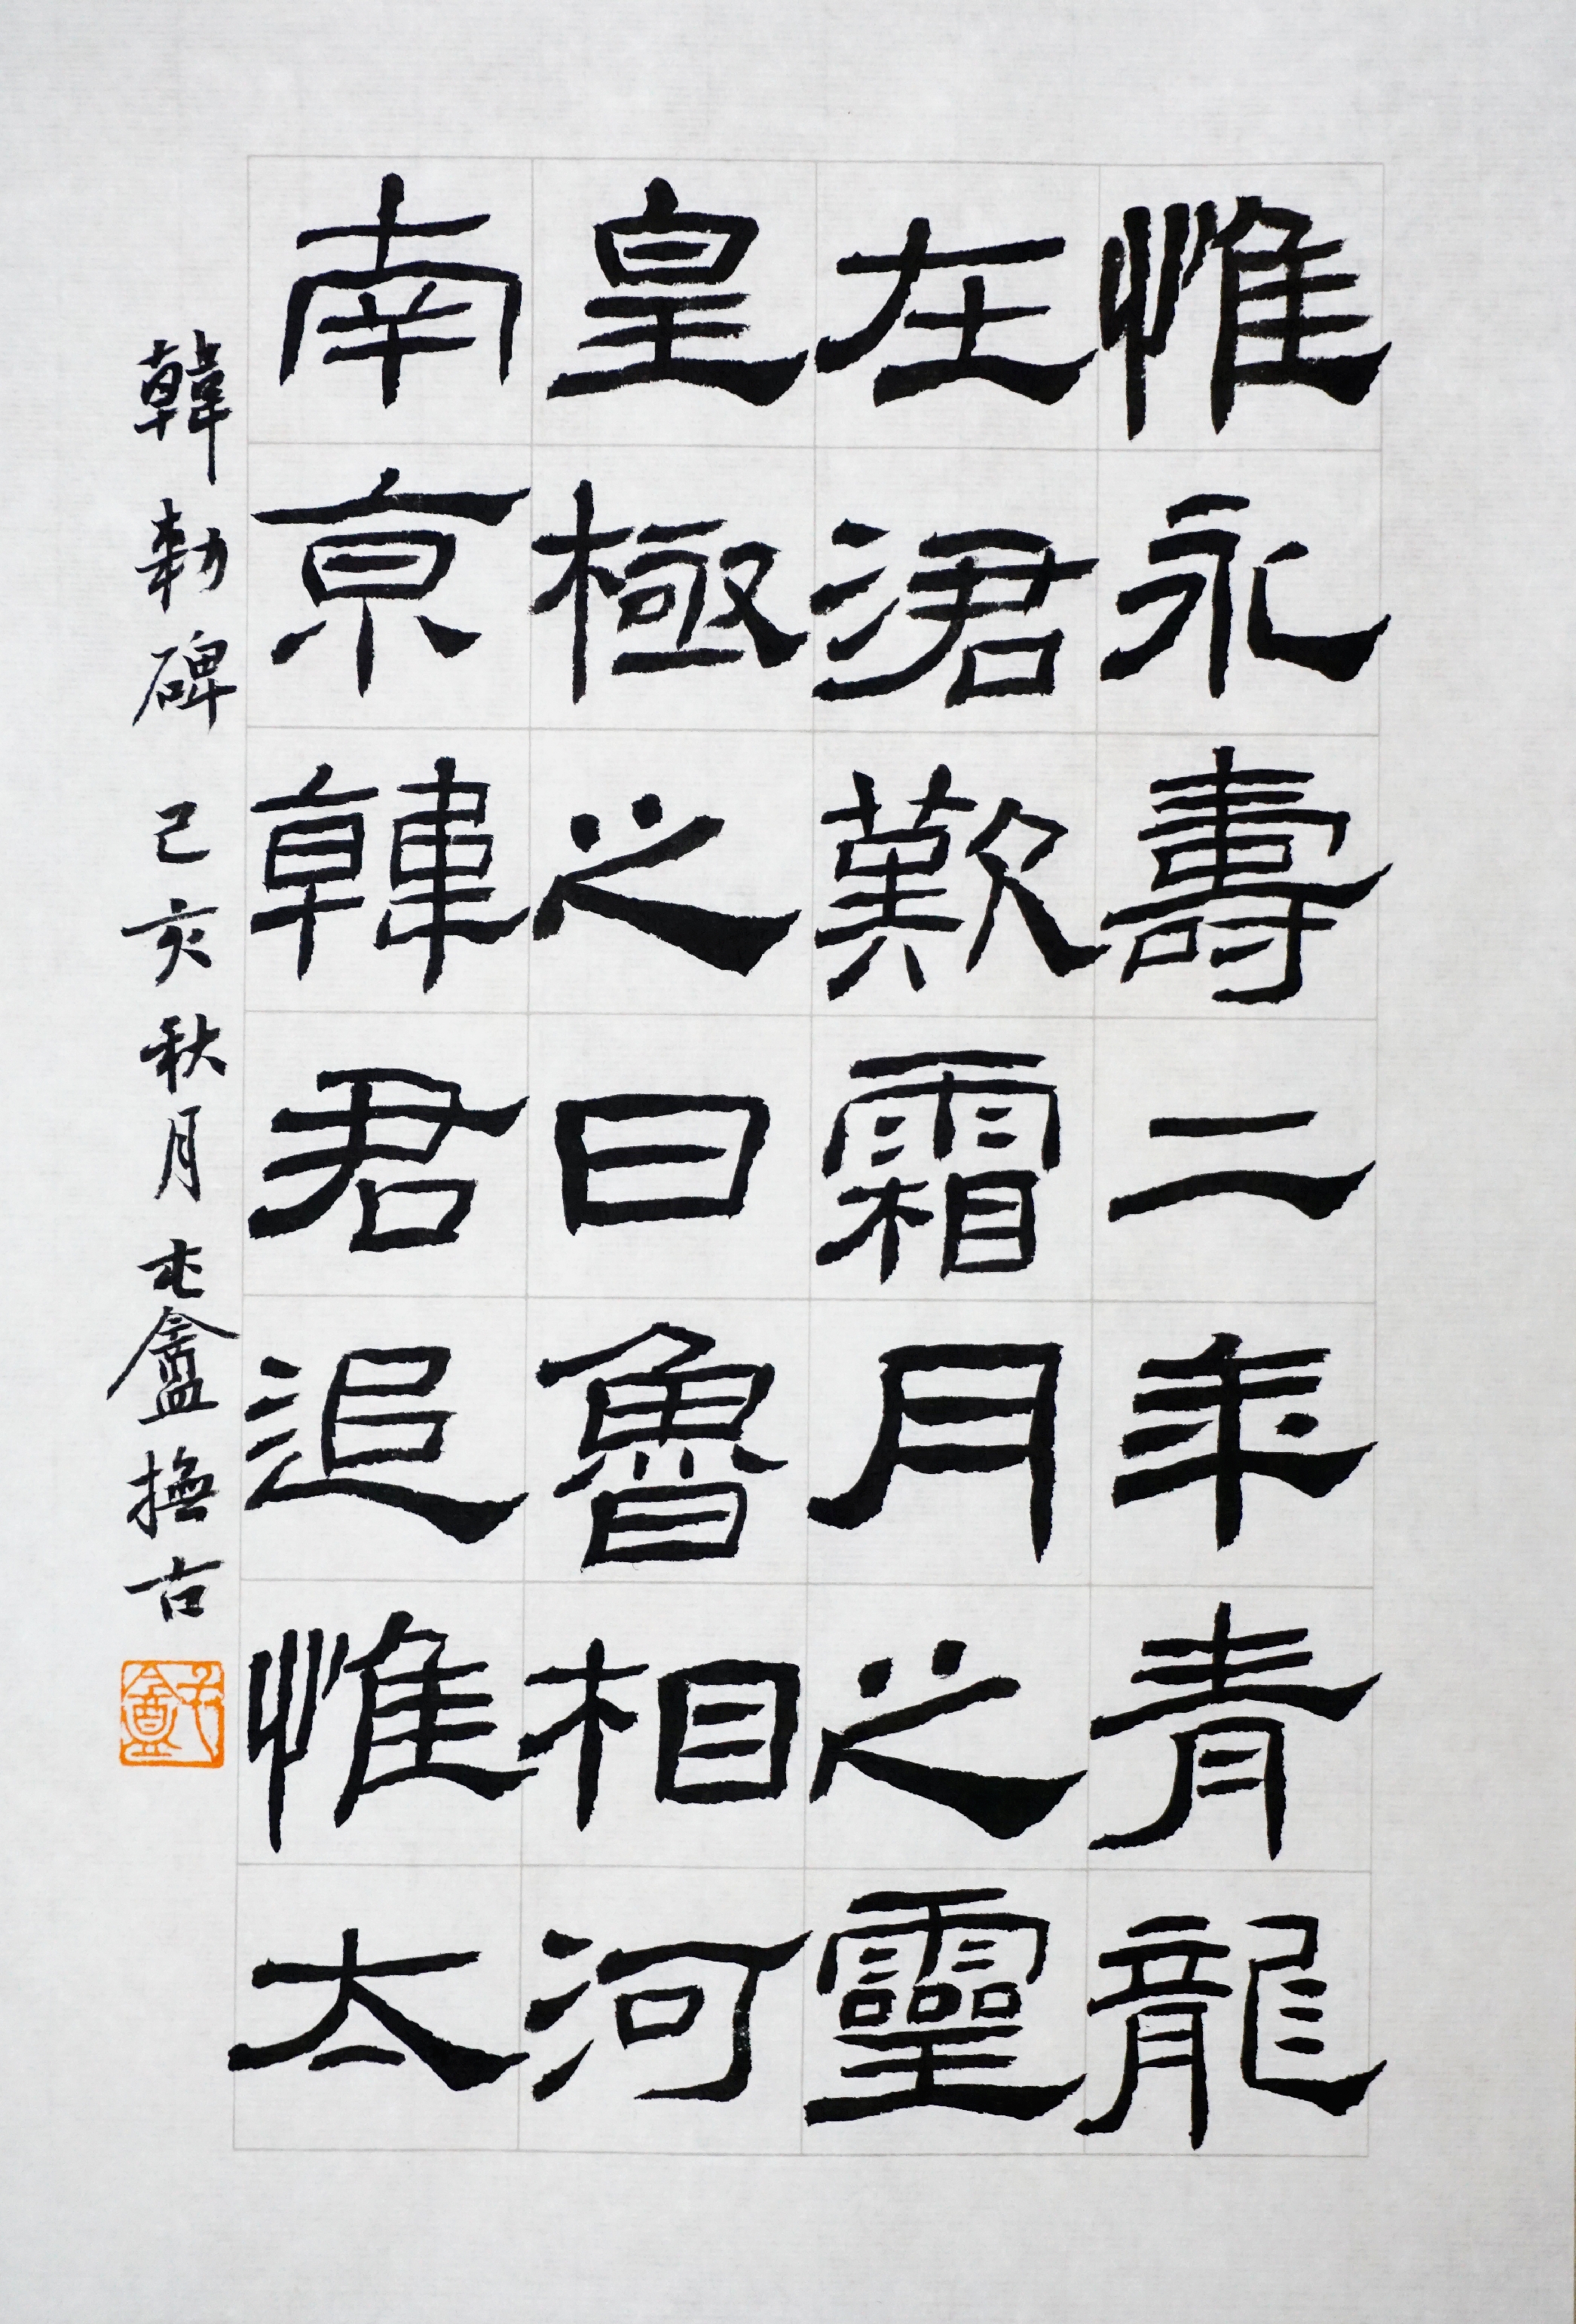 惟永壽二年青龍
在涒歎霜月之靈
皇極之日魯相河
南京韓君追惟太
韓勑碑 己亥秋月 盦撫古